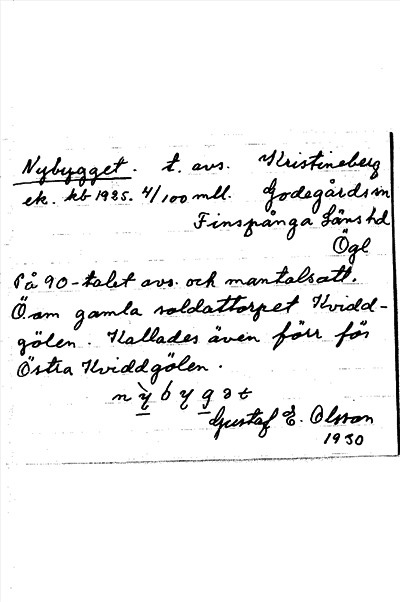 Nybygget. t. avs. Kristineberg
ek. kb 1925. 4/100 mll. Godegårds sn
Finspånga Läns hd
Ögl
På 90-talet avs. och mantalsatt.
Ö. om gamla soldattorpet Kvidd-
gölen. Kallades även förr för
Östra Kviddgölen.
nỳbygət
Gustaf E. Olsson
1930